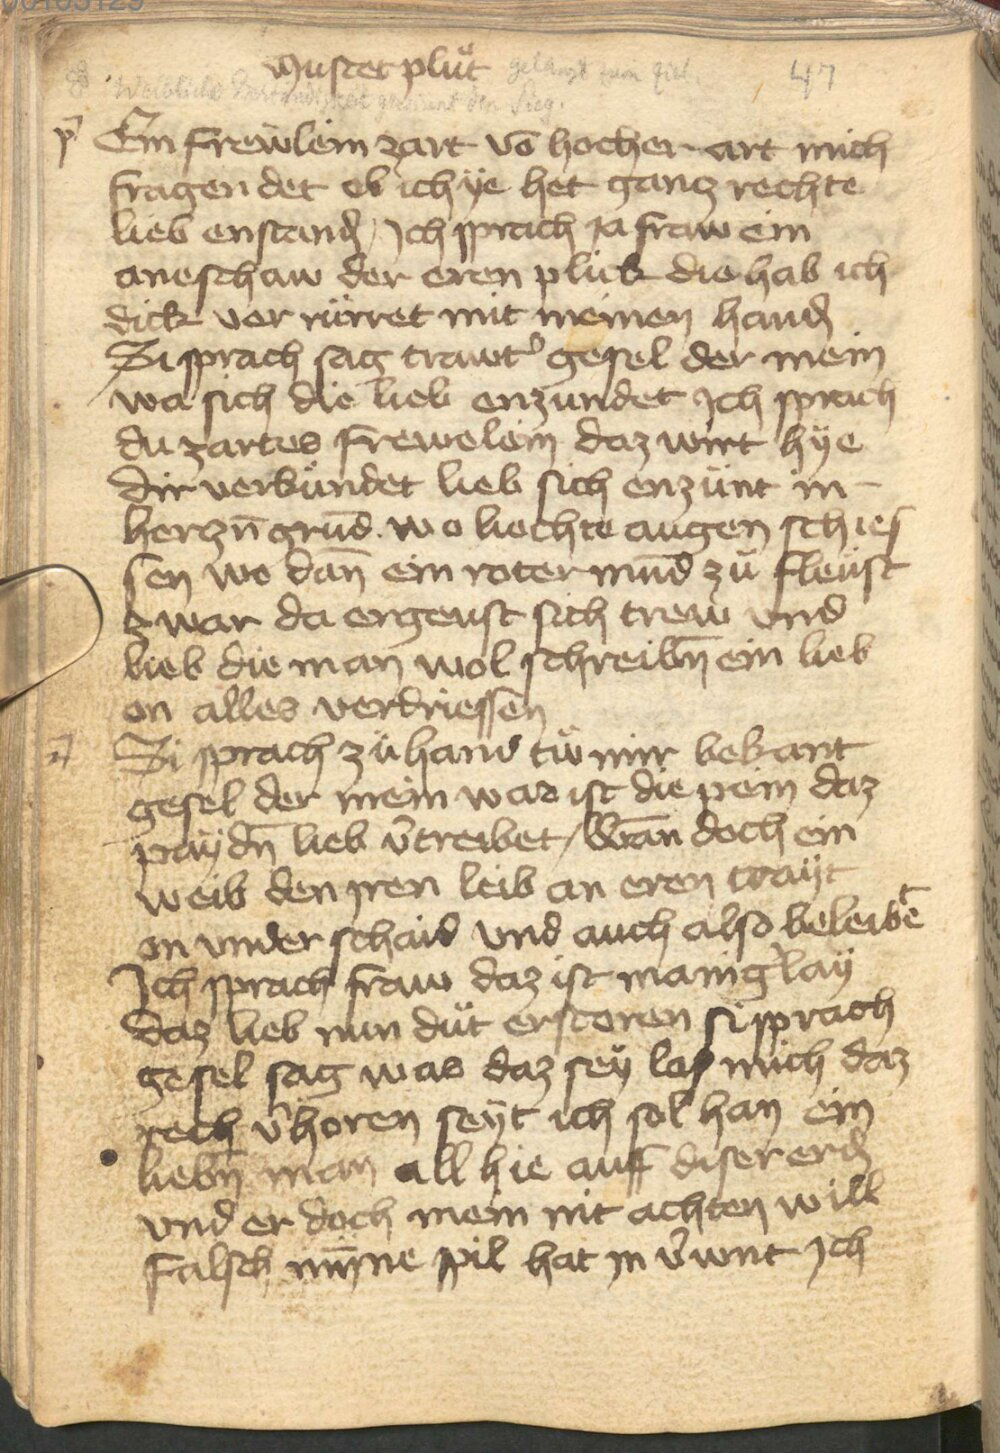 00103129
Muscet plüt gelangt zum Ziel. 47
Weibliche gewinnt den Sieg.
p Ein frewlein zart vō hocher art mich
fragen det ob ich ÿe het gancz rechte
lieb enstand / Ich sprach ja fraw ein
aneschaw der eren plick die hab ich
dick ver rürret mit meinen hand
Si sprach sag trawt gesel der mein
wa sich die lieb enzundet Ich sprach
du zartes frewelein daz wirt hÿe
dir verkündet lieb sich enzünt in
herczn̄ grūd. wo liechte augen schies
sen wo dan̄ ein roter mūd zü fleüst
zwar da ergeust sich trew vnd
lieb die man wol schreibn̄ ein lieb
on alles verdriessen
Si sprach zü hand tü mir bekant
gesel der mein waz ist die pein daz
paÿdn̄ lieb v̄treibet / Wan̄ doch ein
weib den iren leib an eren trayt
on vnderschaid vnd auch also beleibet
Ich sprach fraw daz ist mainglaÿ
daz lieb nun düt erstoren si sprach
gesel sag was daz seÿ las mich daz
rech v̄horen seÿt ich sol han ein
liebn̄ man all hie auff diser erd
vnd er doch mein nit achten will
falsch mīne spil hat in v̄wnt Ich